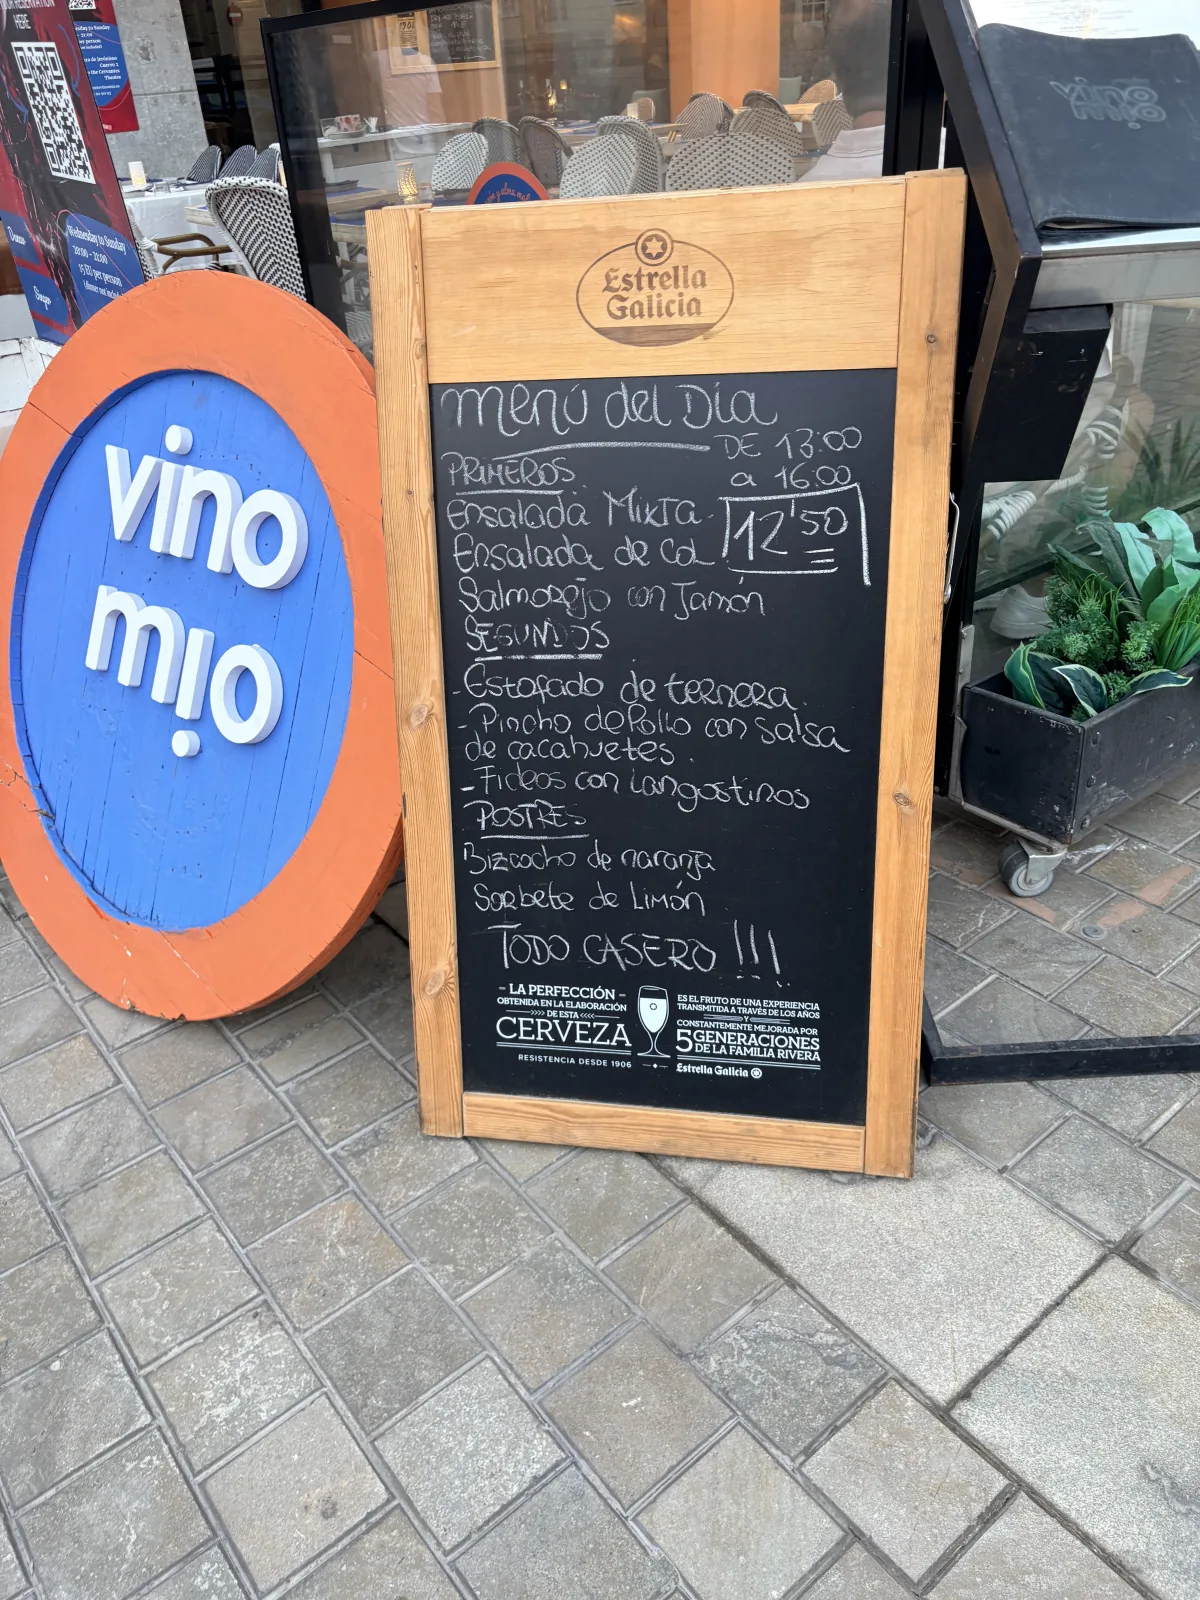 HERE
Wednesday to Sunday
20:00 - 21:00
15 EU per person
Dancer
Singer
vino
mio
Estrella
Galicia
Menú del Día
DE 13:00
a 16:00
PRIMEROS
Ensalada Mixta
12'50
Ensalada de Col
Salmorejo con Jamón
SEGUNDOS
- Estofado de ternera
- Pincho de Pollo con salsa
de cacahuetes.
- Fideos con Langostinos
POSTRES
Bizcocho de naranja
Sorbete de Limón
TODO CASERO !!!
- LA PERFECCIÓN -
OBTENIDA EN LA ELABORACIÓN
>>>> DE ESTA <<<<
CERVEZA
RESISTENCIA DESDE 1906
ES EL FRUTO DE UNA EXPERIENCIA
TRANSMITIDA A TRAVÉS DE LOS AÑOS
Y
CONSTANTEMENTE MEJORADA POR
5 GENERACIONES
DE LA FAMILIA RIVERA
Estrella Galicia
vino
mio